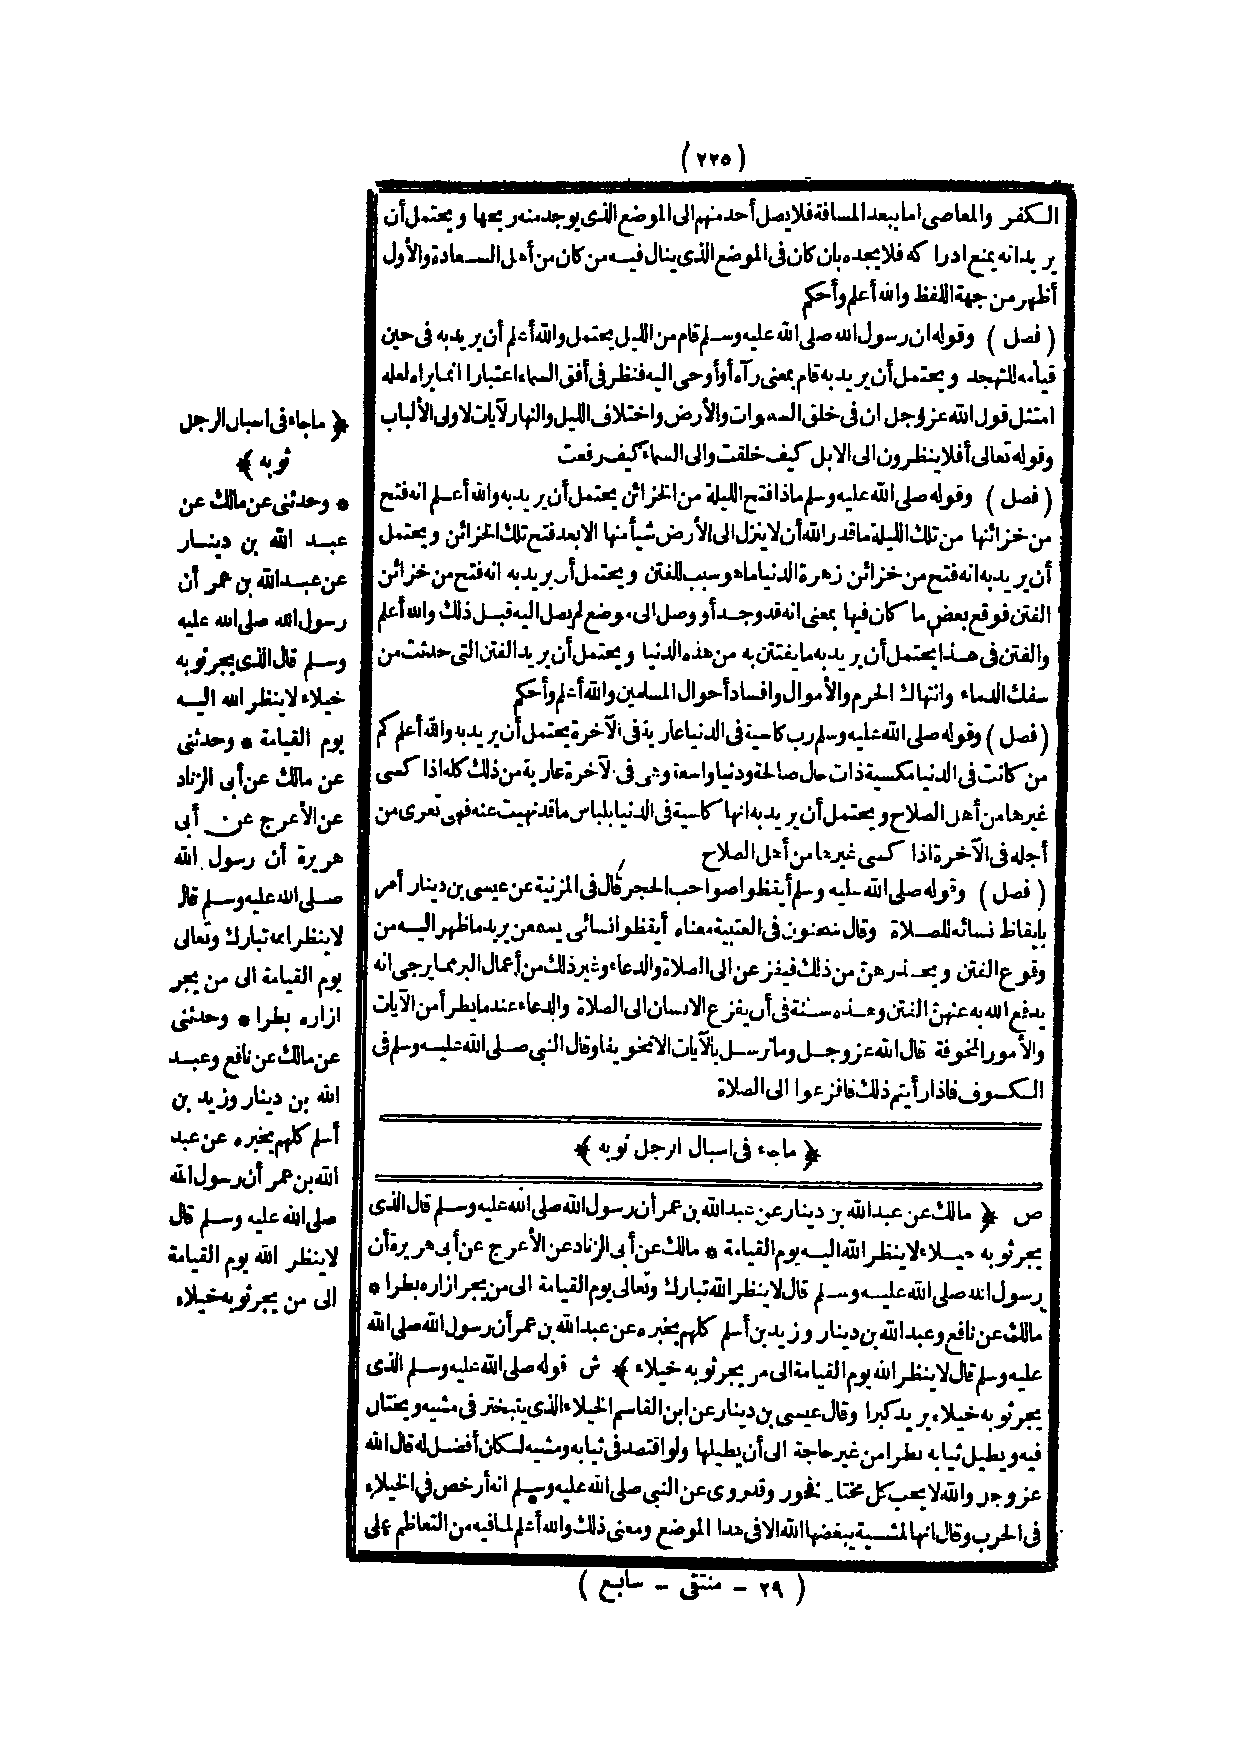 (٢٢٥)
الكفر والمعاصى اما ببعد المسافة فلا يصل أحد منهم الى الموضع الذى يوجد منه ريحها ويحتمل أن
يريد انه يمنع ادراكه فلا يجده بان كان فى الموضع الذى ينال فيه من كان من أهل السعادة والأول
أظهر من جهة اللفظ والله أعلم وأحكم
(فصل) وقوله ان رسول الله صلى الله عليه وسلم قام من الليل يحتمل والله أعلم أن يريد به فى حين
قيامه للتهجد ويحتمل أن يريد به قام بمعنى رآه أو أوحى اليه فنظر فى أفق السماء اعتبارا انما يراه لعله
امتثل قول الله عز وجل ان فى خلق السموات والأرض واختلاف الليل والنهار لآيات لاولى الألباب
وقوله تعالى أفلا ينظرون الى الابل كيف خلقت والى السماء كيف رفعت
(فصل) وقوله صلى الله عليه وسلم ماذا فتح الليلة من الخزائن يحتمل أن يريد به والله أعلم انه فتح
من خزائنها من تلك الليلة ما قدر الله أن لا ينزل الى الأرض شيأ منها الا بعد فتح تلك الخزائن ويحتمل
أن يريد به انه فتح من خزائن زهرة الدنيا ما هو سبب للفتن ويحتمل أن يريد به انه فتح من خزائن
الفتن فوقع بعض ما كان فيها بمعنى انه قد وجد أو وصل الى موضع لم يصل اليه قبل ذلك والله أعلم
والفتن فى هذا يحتمل أن يريد به ما يفتتن به من هذه الدنيا ويحتمل أن يريد الفتن التى حدثت من
سفك الدماء وانتهاك الحرم والأموال وافساد أحوال المسلمين والله أعلم وأحكم
(فصل) وقوله صلى الله عليه وسلم رب كاسية فى الدنيا عارية فى الآخرة يحتمل أن يريد به والله أعلم كم
من كانت فى الدنيا مكسية ذات حال صالحة ودنيا واسعة وهى فى الآخرة عارية من ذلك كله اذا كسى
غيرها من أهل الصلاح ويحتمل أن يريد به انها كاسية فى الدنيا بلباس ما قد نهيت عنه فهى تعرى من
أجله فى الآخرة اذا كسى غيرها من أهل الصلاح
(فصل) وقوله صلى الله عليه وسلم أيقظوا صواحب الحجر قال فى المزنية عن عيسى بن دينار أمر
بايقاظ نسائه للصلاة وقال سحنون فى العتبية معناه أيقظوا نسائى يسمعن يريد ما ظهر اليه من
وقوع الفتن ويحذرهن من ذلك فيفزعن الى الصلاة والدعاء وغير ذلك من أعمال البر مما يرجى انه
يدفع الله به عنهن الفتن وهذه سنة فى أن يفزع الانسان الى الصلاة والدعاء عند ما يطرأ من الآيات
والأمور المخوفة قال الله عز وجل وما نرسل بالآيات الا تخويفا وقال النبى صلى الله عليه وسلم فى
الكسوف فاذا رأيتم ذلك فافزعوا الى الصلاة
﴿ ما جاء فى اسبال الرجل ثوبه ﴾
ص ﴿ مالك عن عبد الله بن دينار عن عبد الله بن عمر أن رسول الله صلى الله عليه وسلم قال الذى
يجر ثوبه خيلاء لا ينظر الله اليه يوم القيامة * مالك عن أبى الزناد عن الأعرج عن أبى هريرة أن
رسول الله صلى الله عليه وسلم قال لا ينظر الله تبارك وتعالى يوم القيامة الى من يجر ازاره بطرا *
مالك عن نافع وعبد الله بن دينار وزيد بن أسلم كلهم يخبره عن عبد الله بن عمر أن رسول الله صلى الله
عليه وسلم قال لا ينظر الله يوم القيامة الى من يجر ثوبه خيلاء ﴾ ش قوله صلى الله عليه وسلم الذى
يجر ثوبه خيلاء يريد كبرا وقال عيسى بن دينار عن ابن القاسم الخيلاء الذى يتبختر فى مشيه ويختال
فيه ويطيل ثيابه بطرا من غير حاجة الى أن يطيلها ولو اقتصد فى ثيابه ومشيه لكان أفضل له قال الله
عز وجل والله لا يحب كل مختال فخور وقد روى عن النبى صلى الله عليه وسلم انه أرخص فى الخيلاء
فى الحرب وقال انها لمشية يبغضها الله الا فى هذا الموضع ومعنى ذلك والله أعلم لما فيه من التعاظم على
﴿ ما جاء فى اسبال الرجل
ثوبه ﴾
* وحدثنى عن مالك عن
عبد الله بن دينار
عن عبد الله بن عمر أن
رسول الله صلى الله عليه
وسلم قال الذى يجر ثوبه
خيلاء لا ينظر الله اليه
يوم القيامة * وحدثنى
عن مالك عن أبى الزناد
عن الأعرج عن أبى
هريرة أن رسول الله
صلى الله عليه وسلم قال
لا ينظر الله تبارك وتعالى
يوم القيامة الى من يجر
ازاره بطرا * وحدثنى
عن مالك عن نافع وعبد
الله بن دينار وزيد بن
أسلم كلهم يخبره عن عبد
الله بن عمر أن رسول الله
صلى الله عليه وسلم قال
لا ينظر الله يوم القيامة
الى من يجر ثوبه خيلاء
(٢٩ - منتقى - سابع)